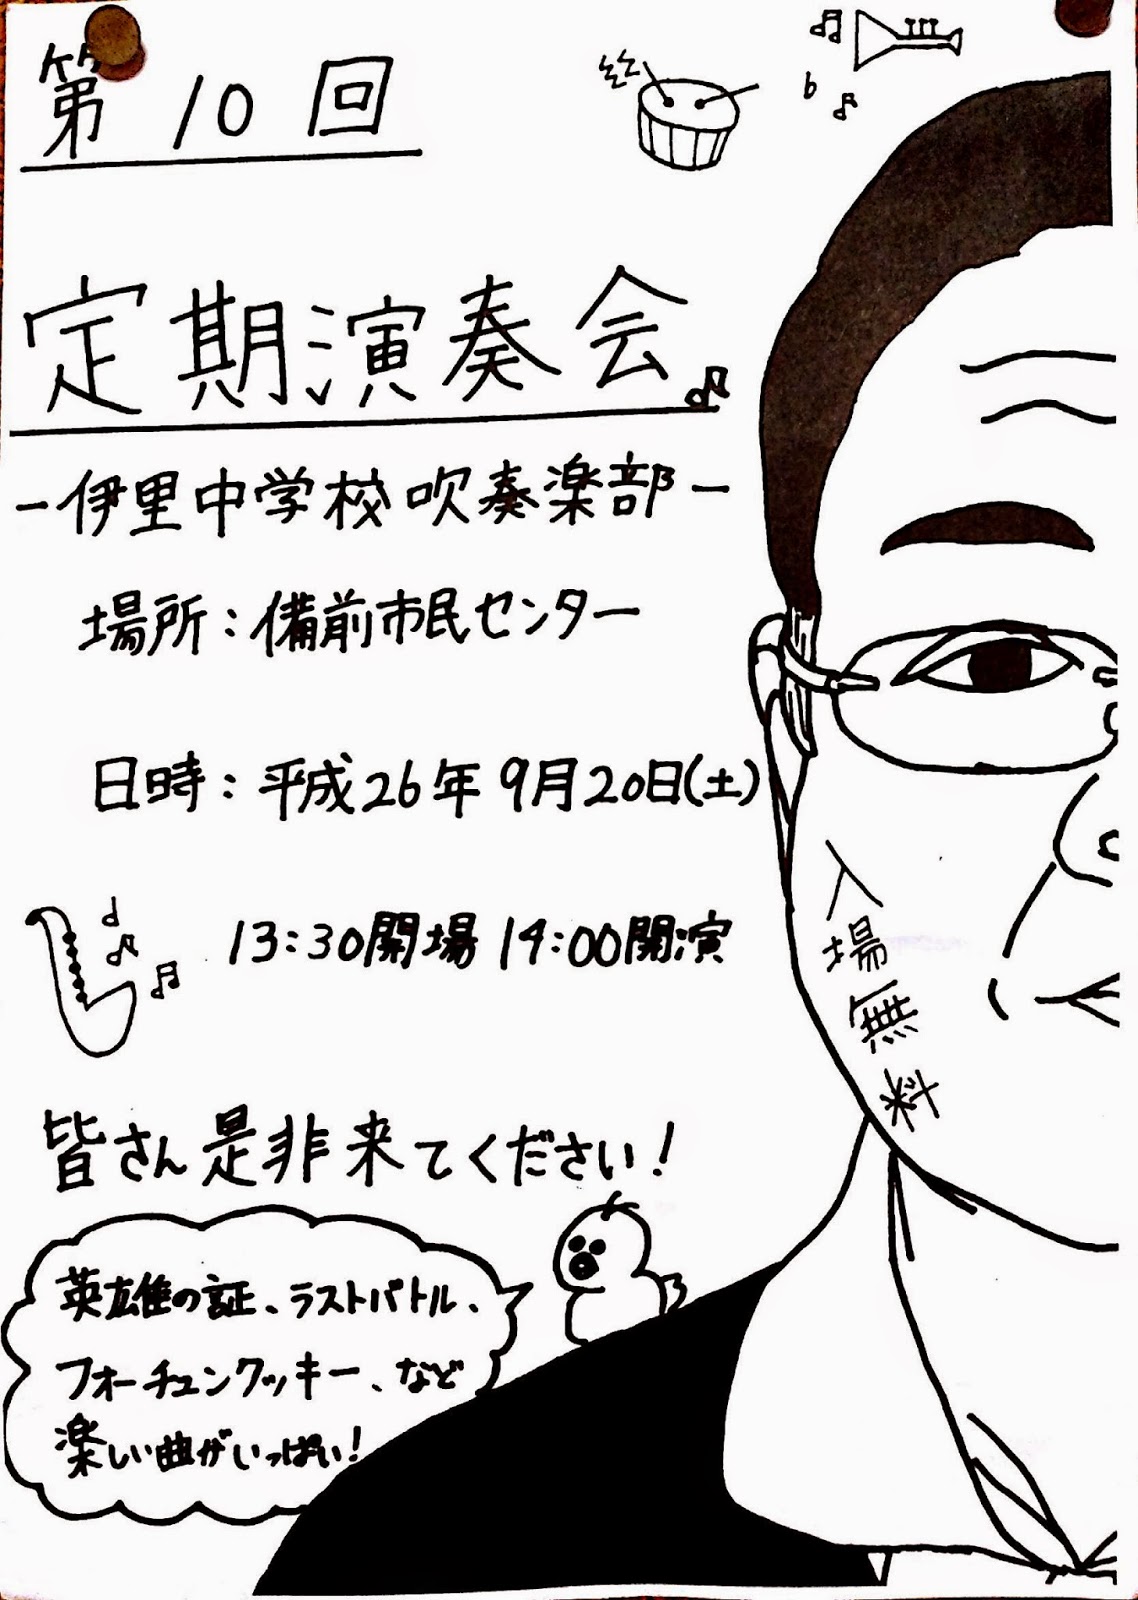 第10回
定期演奏会
-伊里中学校吹奏楽部-
場所:備前市民センター
日時:平成26年9月20日(土)
13:30開場 14:00開演
入場無料
皆さん是非来てください!
英雄の証、ラストバトル、
フォーチュンクッキー、など
楽しい曲がいっぱい!